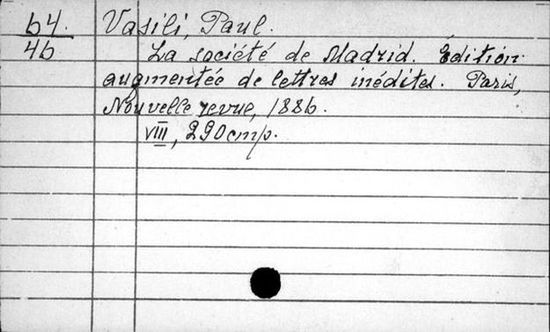 64. Vasili, Paul.
46 La société de Madrid. Édition
augmentée de lettres inédites. Paris,
Nouvelle revue, 1886.
VIII, 290 стр.